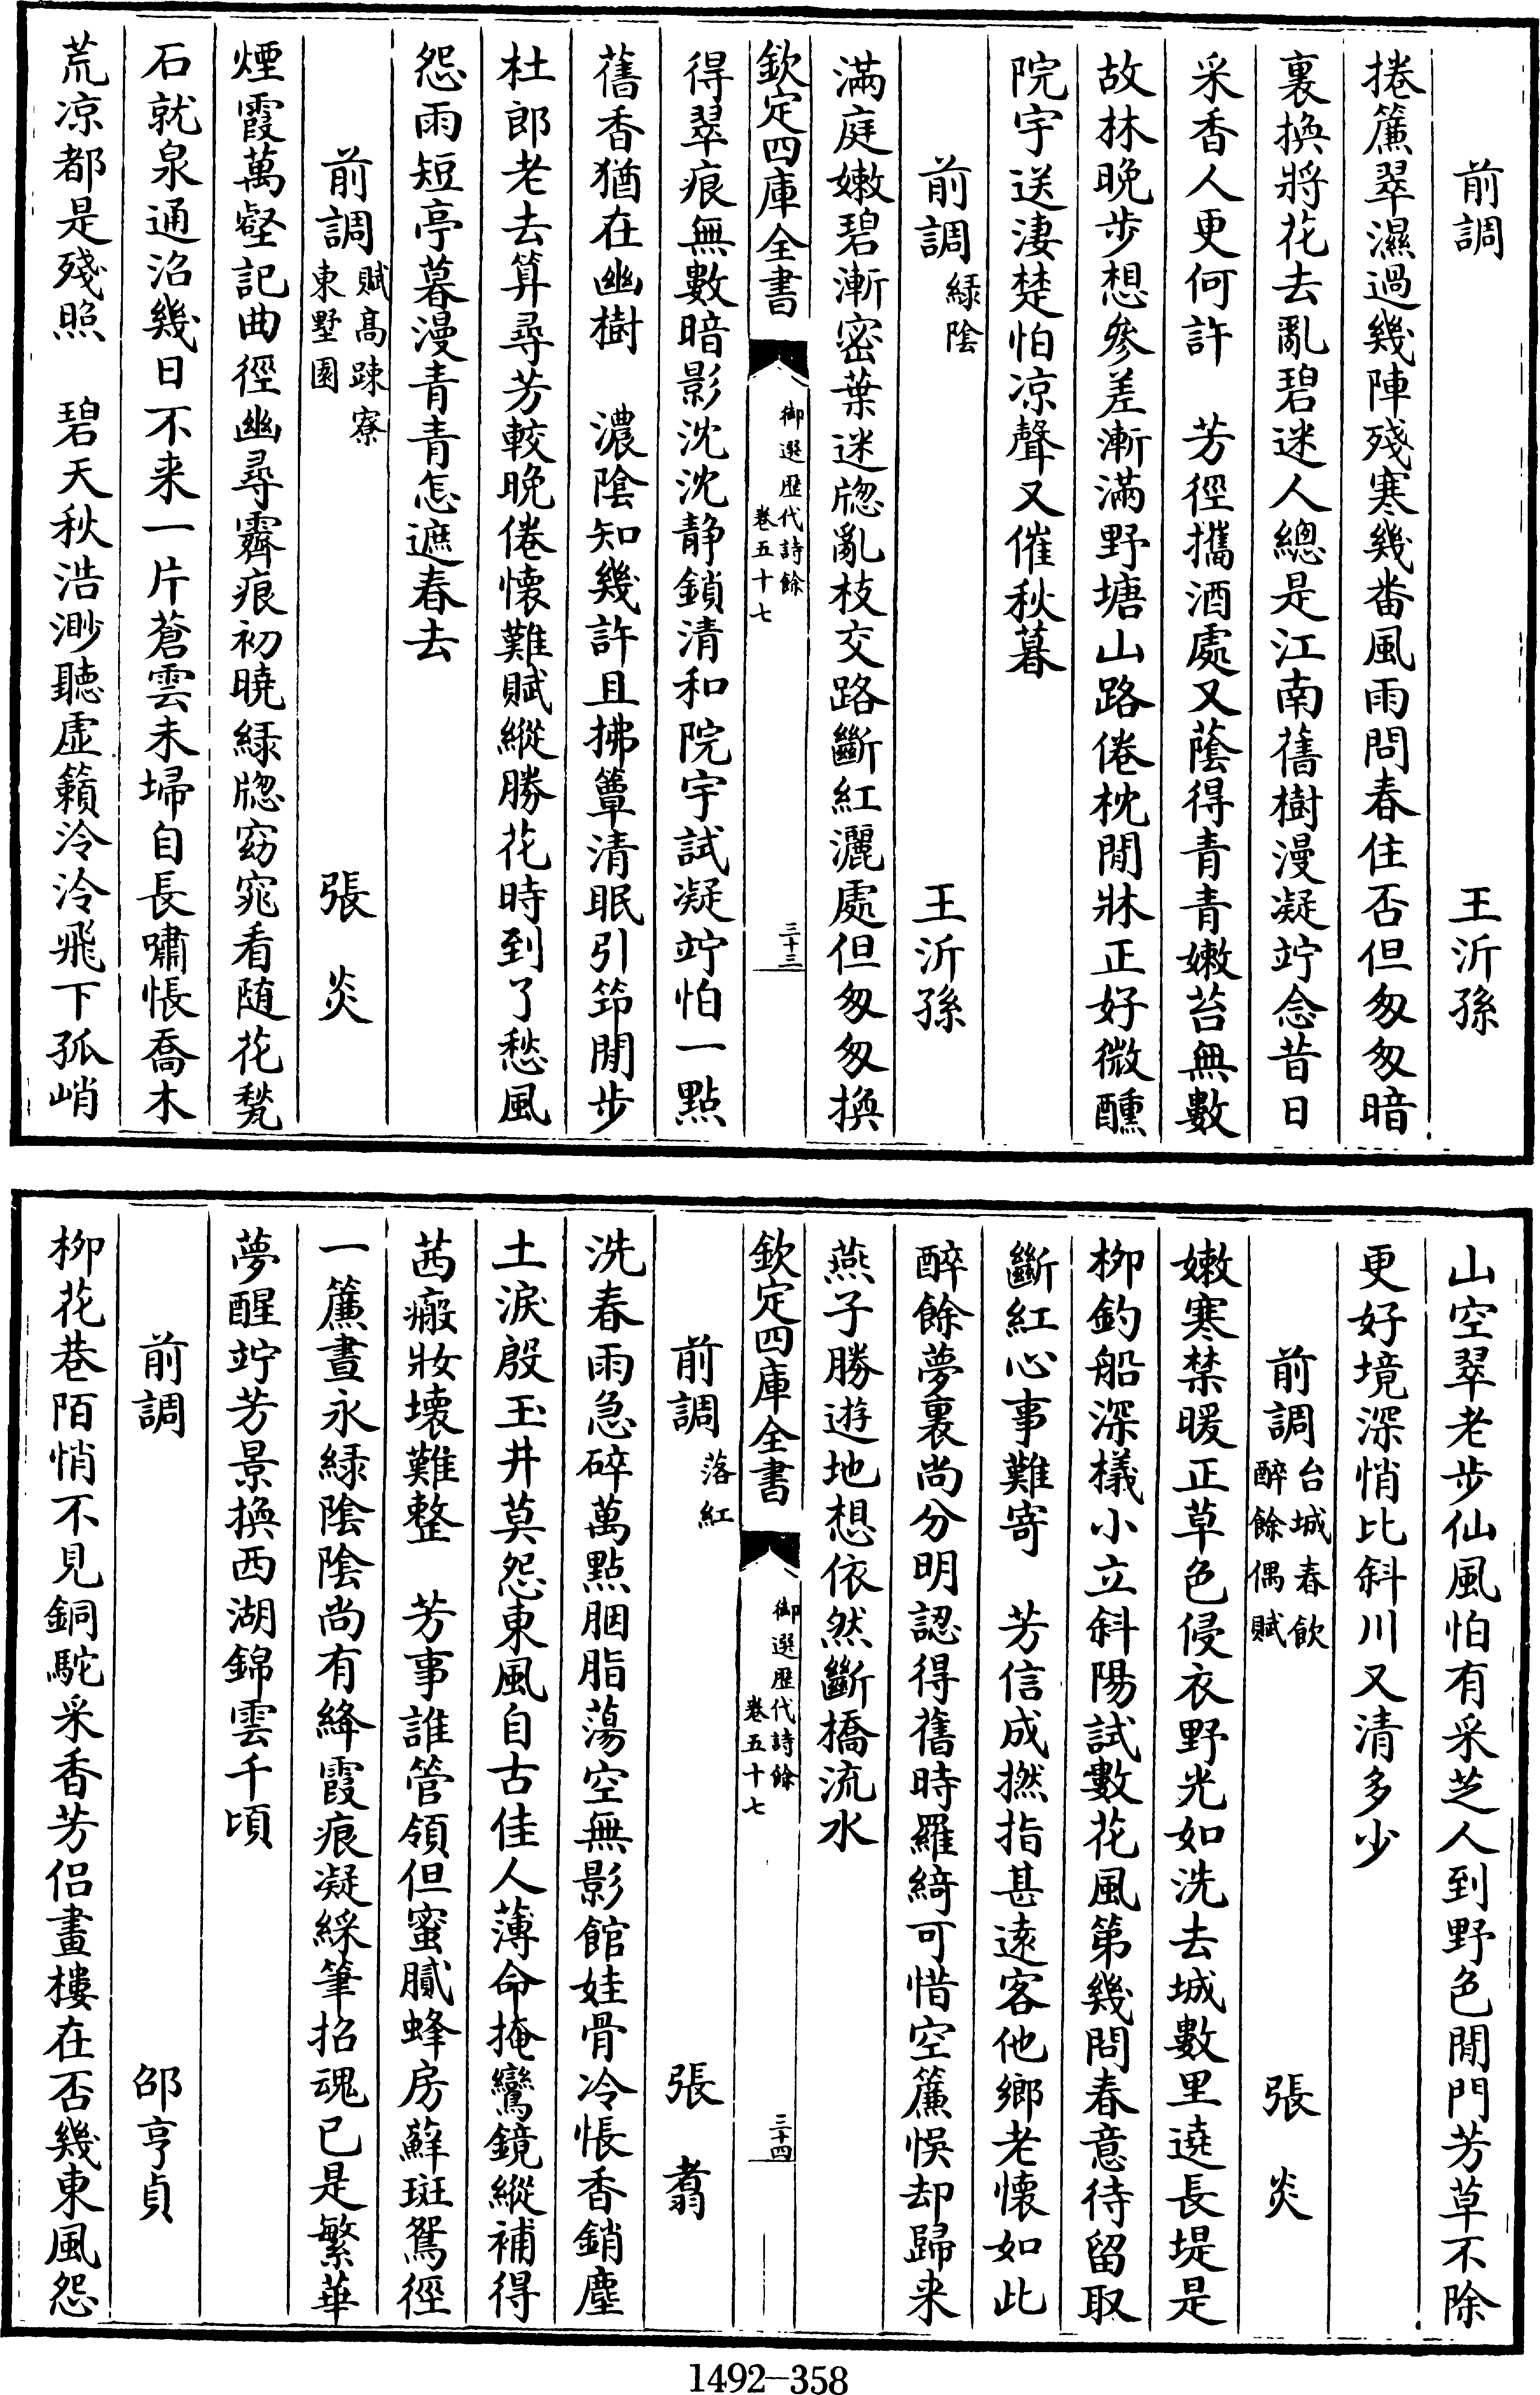 前調　王沂孫
捲簾翠濕過幾陣殘寒幾番風雨問春住否但匆匆暗
裏換將花去亂碧迷人總是江南舊樹漫凝竚念昔日
采香人更何許　芳徑攜酒處又蔭得青青嫩苔無數
故林晚步想參差漸滿野塘山路倦枕閒牀正好微醺
院宇送淒楚怕凉聲又催秋暮
前調緑陰　王沂孫
滿庭嫩碧漸密葉迷牕亂枝交路斷紅灑處但匆匆換
欽定四庫全書　御選歷代詩餘　卷五十七　三十三
得翠痕無數暗影沈沈静鎖清和院宇試凝竚怕一點
舊香猶在幽樹　濃陰知幾許且拂簟清眠引筇閒步
杜郎老去算尋芳較晚倦懷難賦縱勝花時到了愁風
怨雨短亭暮漫青青怎遮春去
前調賦高疎寮東墅園　張炎
煙霞萬壑記曲徑幽尋霽痕初曉緑牕窈窕看随花甃
石就泉通沼幾日不来一片蒼雲未埽自長嘯悵喬木
荒凉都是殘照　碧天秋浩渺聽虛籟泠泠飛下孤峭
山空翠老步仙風怕有采芝人到野色閒門芳草不除
更好境深悄比斜川又清多少
前調台城春飲醉餘偶賦　張炎
嫩寒禁暖正草色侵衣野光如洗去城數里遶長堤是
柳釣船深檥小立斜陽試數花風第幾問春意待留取
斷紅心事難寄　芳信成撚指甚遠客他鄉老懷如此
醉餘夢裏尚分明認得舊時羅綺可惜空簾悞却歸来
燕子勝遊地想依然斷橋流水
欽定四庫全書　御選歷代詩餘　卷五十七　三十四
前調落紅　張翥
洗春雨急碎萬點胭脂蕩空無影館娃骨冷悵香銷塵
土淚殷玉井莫怨東風自古佳人薄命掩鸞鏡縱補得
茜瘢妝壊難整　芳事誰管領但蜜膩蜂房蘚斑鴛徑
一簾晝永緑陰陰尚有絳霞痕凝綵筆招魂已是繁華
夢醒竚芳景換西湖錦雲千頃
前調　邵亨貞
柳花巷陌悄不見銅駝采香芳侣畫樓在否幾東風怨
1492—358